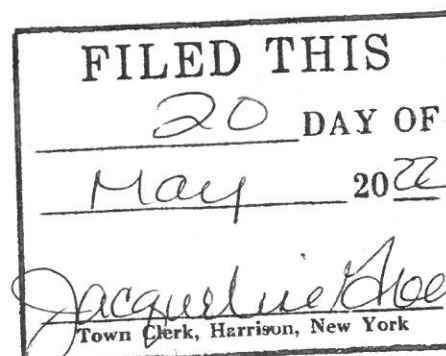 FILED THIS
20 DAY OF
May 2022
Jacqueline
Town Clerk, Harrison, New York